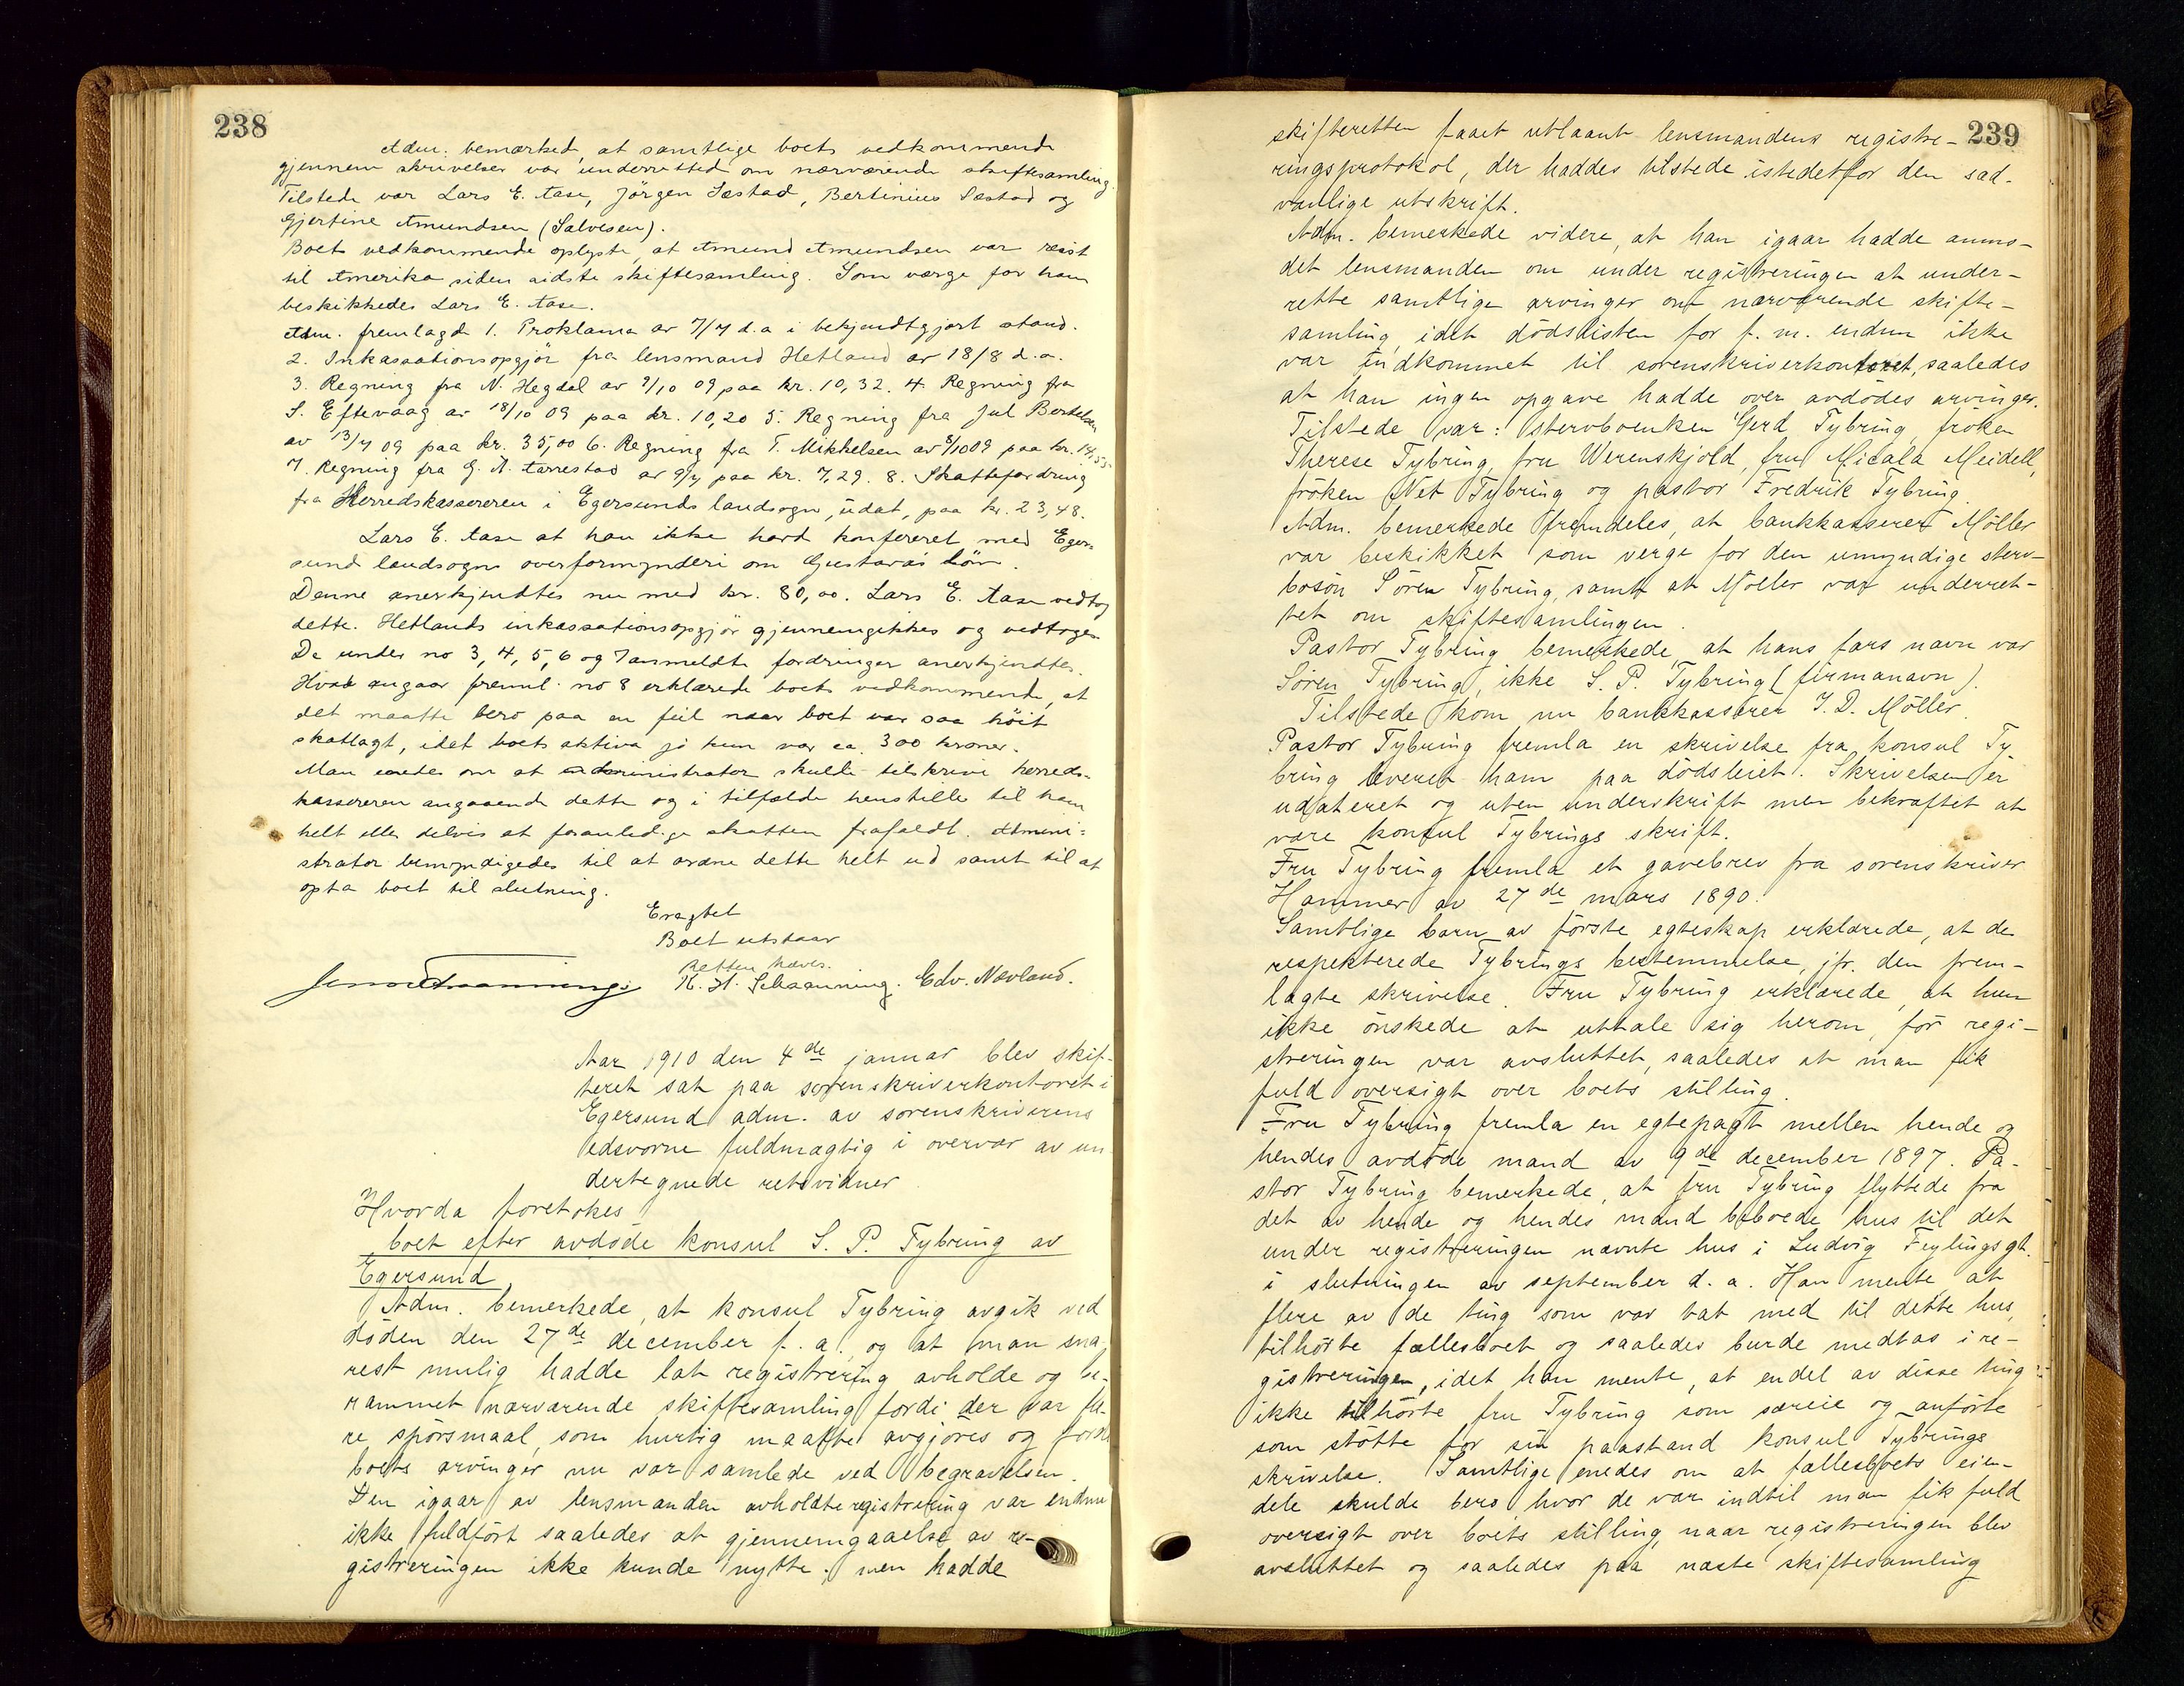 238
Adm. bemærked, at samtlige boets vedkommende
gjennem skrivelser var underrettet om nærværende skiftesamling.
Tilstede var Lars E. Aase, Jörgen Sæstad, Bertinius Sæstad og
Gjertine Amundsen (Salvesen).
Boets vedkommende oplyste, at Amund Amundsen var reist
til Amerika siden sidste skiftesamling. Som værge for ham
beskikkedes Lars E. Aase.
Adm. fremlagde 1. Proklama av 7/7 d.a i bekjendtgjort stand.
2. Inkassationsopgjör fra lensmand Hetland av 18/8 d.a.
3. Regning fra N. Hegdal av 9/10 09 paa kr. 10,32. 4. Regning fra
S. Eftevaag av 18/10 09 paa kr. 10,20 5. Regning fra Jul Bertelsen
av 13/7 09 paa kr. 35,00 6. Regning fra T. Mikkelsen av 8/10 09 paa kr. 14,55
7. Regning fra G. A. Aarrestad av 9/7 paa kr. 7,29. 8. Skattefordring
fra Herredskassereren i Egersunds landsogn, udat, paa kr. 23,48.
Lars E. Aase at han ikke havd konfereret med Eger-
sund landsogns overformynderi om Gustavas lön.
Denne anerkjendtes nu med kr. 80,00. Lars E. Aase vedtog
dette. Hetlands inkassationsopgjör gjennemgikkes og vedtoges
De under no 3, 4, 5, 6 og 7 anmeldte fordringer anerkjendtes.
Hvad angaar freml. no 8 erklærede boets vedkommende, at
det maatte bero paa en feil naar boet var saa höit
skatlagt, idet boets aktiva jo kun var ca. 300 kroner.
Man enedes om at administrator skulde tilskrive herreds-
kassereren angaaende dette og i tilfælde henstille til ham
helt eller delvis at foranledige skatten frafaldt. Admini=
strator bemyndigedes til at ordne dette helt ud samt til at
opta boet til slutning.
Eragtet
Boet utstaar
Retten hævet.
K. H. Schaanning. Edv. Nævland.
Aar 1910 den 4de januar blev skif-
teret sat paa sorenskriverkontoret i
Egersund adm. av sorenskriverens
edsvorne fuldmægtig i overvær av un
dertegnede retsvidner.
Hvorda foretokes
boet efter avdöde konsul S. P. Tybring av
Egersund
Adm. bemerkede, at konsul Tybring avgik ved
döden den 27de december f. a. og at man sna-
rest mulig hadde lat registrering avholde og be-
rammet nærværende skiftesamling fordi der var fle-
re spörsmaal, som hurtig maatte avgjöres og fordi
boets arvinger nu var samlede ved begravelsen.
Den igaar av lensmanden avholdte registrering var endnu
ikke fuldfört saaledes at gjennemgaaelse av re-
gistreringen ikke kunde nytte; men hadde
239
skifteretten faaet utlaant lensmandens registre-
ringsprotokol, der haddes tilstede istedetfor den sæd-
vanlige utskrift.
Adm. bemerkede videre, at han igaar hadde anmo-
det lensmanden om under registreringen at under-
rette samtlige arvinger om nærværende skifte-
samling, idet dödslisten for f. m. endnu ikke
var indkommet til sorenskriverkontoret, saaledes
at han ingen opgave hadde over avdödes arvinger.
Tilstede var: stervboenken Gerd Tybring, fröken
Therese Tybring, fru Werenskjold, fru Micala Meidell,
fröken Net Tybring og pastor Fredrik Tybring.
Adm. bemerkede fremdeles, at bankkasserer Möller
var beskikket som verge for den umyndige sterv-
bosön Sören Tybring, samt at Möller var underret-
tet om skiftesamlingen.
Pastor Tybring bemerkede, at hans fars navn var
Sören Tybring, ikke S. P. Tybring (firmanavn).
Tilstede kom nu bankkasserer J. D. Möller.
Pastor Tybring fremla en skrivelse fra konsul Ty
bring leveret ham paa dödsleiet. Skrivelsen er
udateret og uten underskrift men bekræftet at
være konsul Tybrings skrift.
Fru Tybring fremla et gavebrev fra sorenskriver
Hammer av 27de mars 1890.
Samtlige barn av förste egteskap erklærede, at de
respekterede Tybrings bestemmelse, jfr. den frem-
lagte skrivelse. Fru Tybring erklærede, at hun
ikke önskede at uttale sig herom, för regi-
streringen var avsluttet, saaledes at man fik
fuld oversigt over boets stilling.
Fru Tybring fremla en egtepagt mellem hende og
hendes avdöde mand av 9de december 1897. Pa-
stor Tybring bemerkede, at fru Tybring flyttede fra
det av hende og hendes mand beboede hus til det
under registreringen nævnte hus i Ludvig Feylingsgt.
i slutningen av september d. a. Han mente, at
flere av de ting som var tat med til dette hus,
tilhörte fællesboet og saaledes burde medtas i re-
gistreringen, idet han mente, at endel av disse ting
ikke tilhörte fru Tybring som særeie og anförte
som stötte for sin paastand konsul Tybrings
skrivelse. Samtlige enedes om at fællesboets eien-
dele skulde bero, hvor de var indtil man fik fuld
oversigt over boets stilling, naar registreringen blev
avsluttet og saaledes paa næste skiftesamling